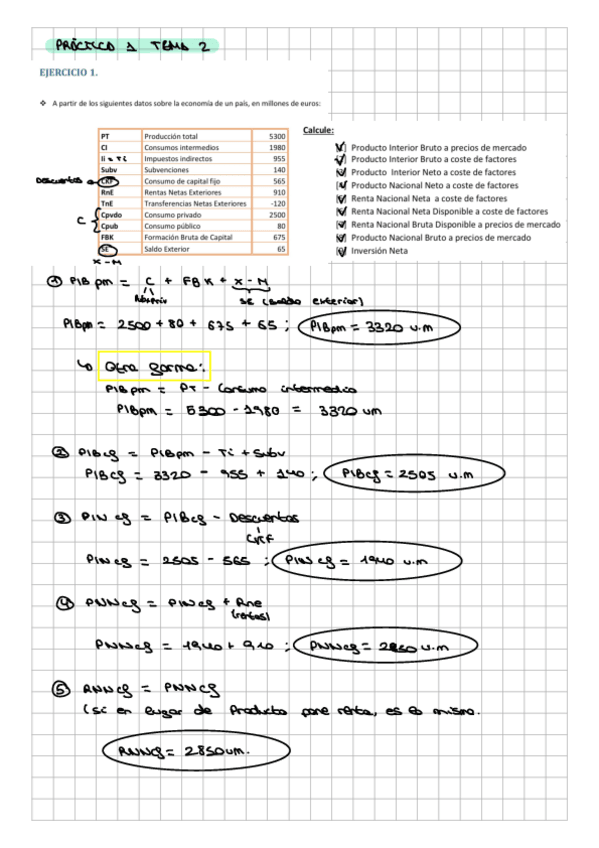 PRÁCTICO 1 TEMA 2
EJERCICIO 1.
❖ A partir de los siguientes datos sobre la economía de un país, en millones de euros:
Calcule:
PT Producción total 5300
CI Consumos intermedios 1980
Ii = Ti Impuestos indirectos 955
Subv Subvenciones 140
Descuentos CKF Consumo de capital fijo 565
RnE Rentas Netas Exteriores 910
TnE Transferencias Netas Exteriores -120
C { Cpvdo Consumo privado 2500
Cpub Consumo público 80
FBK Formación Bruta de Capital 675
SE Saldo Exterior 65
X - M
Producto Interior Bruto a precios de mercado
Producto Interior Bruto a coste de factores
Producto Interior Neto a coste de factores
Producto Nacional Neto a coste de factores
Renta Nacional Neta a coste de factores
Renta Nacional Neta Disponible a coste de factores
Renta Nacional Bruta Disponible a precios de mercado
Producto Nacional Bruto a precios de mercado
Inversión Neta
① PIB pm = C + FBK + X - M
SE (Saldo exterior)
PIBpm = 2500 + 80 + 675 + 65 ; PIBpm = 3320 u.m
↳ Otra forma:
PIB pm = PT - Consumo intermedio
PIBpm = 5300 - 1980 = 3320 um
② PIBcf = PIBpm - Ti + Subv
PIBcf = 3320 - 955 + 140 ; PIBcf = 2505 u.m
③ PIN cf = PIBcf - Descuentos
CKF
PINcf = 2505 - 565 ; PINcf = 1940 u.m
④ PNNcf = PINcf + Rne
(rentas)
PNNcf = 1940 + 910 ; PNNcf = 2850 u.m
⑤ RNNcf = PNNcf
(si en lugar de Producto pone renta, es lo mismo.
RNNcf = 2850um.